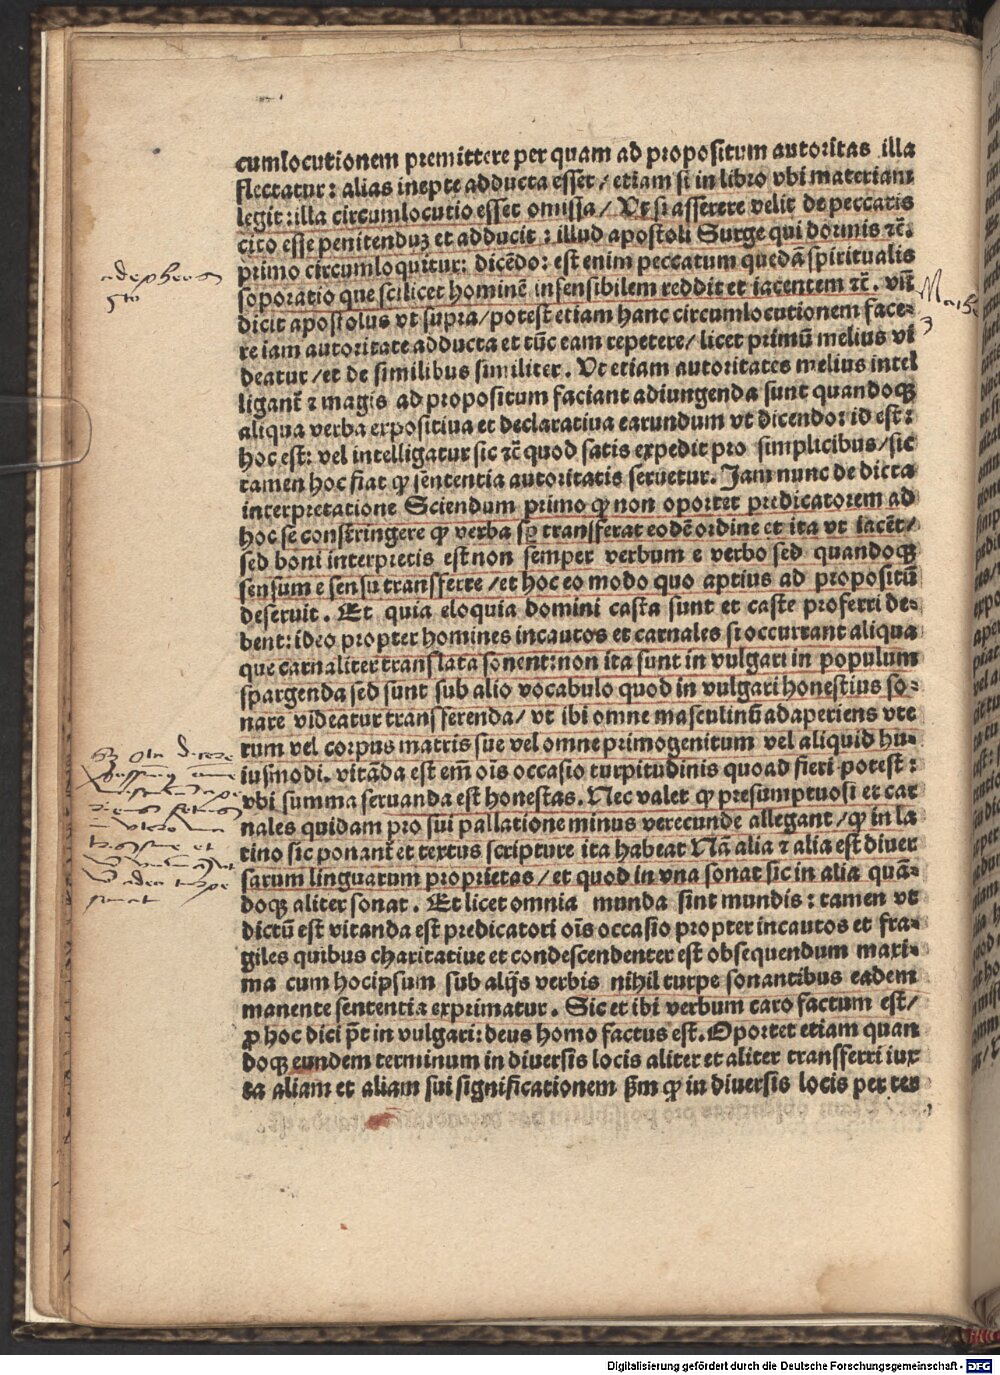 cumlocutionem premittere per quam ad propositum autoritas illa
flectatur: alias inepte adducta esset / etiam si in libro vbi materiam
legit: illa circumlocutio esset omissa / Vt si asserere velit de peccatis
cito esse penitenduʒ et adducit : illud apostoli Surge qui dormis ⁊c̄.
primo circumloquitur: dicēdo: est enim peccatum quedā spiritualis
soporatio que scilicet hominē insensibilem reddit et iacentem ⁊c̄. vñ
dicit apostolus vt supra / potest etiam hanc circumlocutionem face⸗
re iam autoritate adducta et tūc eam repetere / licet primū melius vi
deatur / et de similibus similiter . Vt etiam autoritates melius intel
ligant̄ ⁊ magis ad propositum faciant adiungenda sunt quandoqꝫ
aliqua verba expositiua et declaratiua earundum vt dicendo: id est:
hoc est: vel intelligatur sic ⁊c̄ quod satis expedit pro simplicibus / sic
tamen hoc fiat ꝙ sententia autoritatis seruetur. Jam nunc de dicta
interpretatione Sciendum primo ꝙ non oportet predicatorem ad
hoc se constringere ꝙ verba sꝑ transferat eodē ordine et ita vt iacēt /
sed boni interpretis est non semper verbum e verbo sed quandoqꝫ
sensum e sensu transferre / et hoc eo modo quo aptius ad propositū
deseruit . Et quia eloquia domini casta sunt et caste proferri de⸗
bent: ideo propter homines incautos et carnales si occurrant aliqua
que carnaliter translata sonent: non ita sunt in vulgari in populum
spargenda sed sunt sub alio vocabulo quod in vulgari honestius so⸗
nare videatur transferenda / vt ibi omne masculinū adaperiens vte
rum vel corpus matris sue vel omne primogenitum vel aliquid hu⸗
iusmodi. vitāda est em̄ oīs occasio turpitudinis quoad fieri potest:
vbi summa seruanda est honestas. Nec valet ꝙ presumptuosi et car
nales quidam pro sui pallatione minus verecunde allegant / ꝙ in la
tino sic ponant̄ et textus scripture ita habeat Nā alia ⁊ alia est diuer
sarum linguarum proprietas / et quod in vna sonat sic in alia quā⸗
doqꝫ aliter sonat . Et licet omnia munda sint mundis: tamen vt
dictū est vitanda est predicatori oīs occasio propter incautos et fra⸗
giles quibus charitatiue et condescendenter est obsequendum maxi⸗
ma cum hocipsum sub alijs verbis nihil turpe sonantibus eadem
manente sententia exprimatur . Sic et ibi verbum caro factum est /
ꝓ hoc dici pōt in vulgari: deus homo factus est. Oportet etiam quan
doqꝫ eundem terminum in diuersis locis aliter et aliter transferri iux
ta aliam et aliam sui significationem ẞm ꝙ in diuersis locis per tex
Digitalisierung gefördert durch die Deutsche Forschungsgemeinschaft - DFG